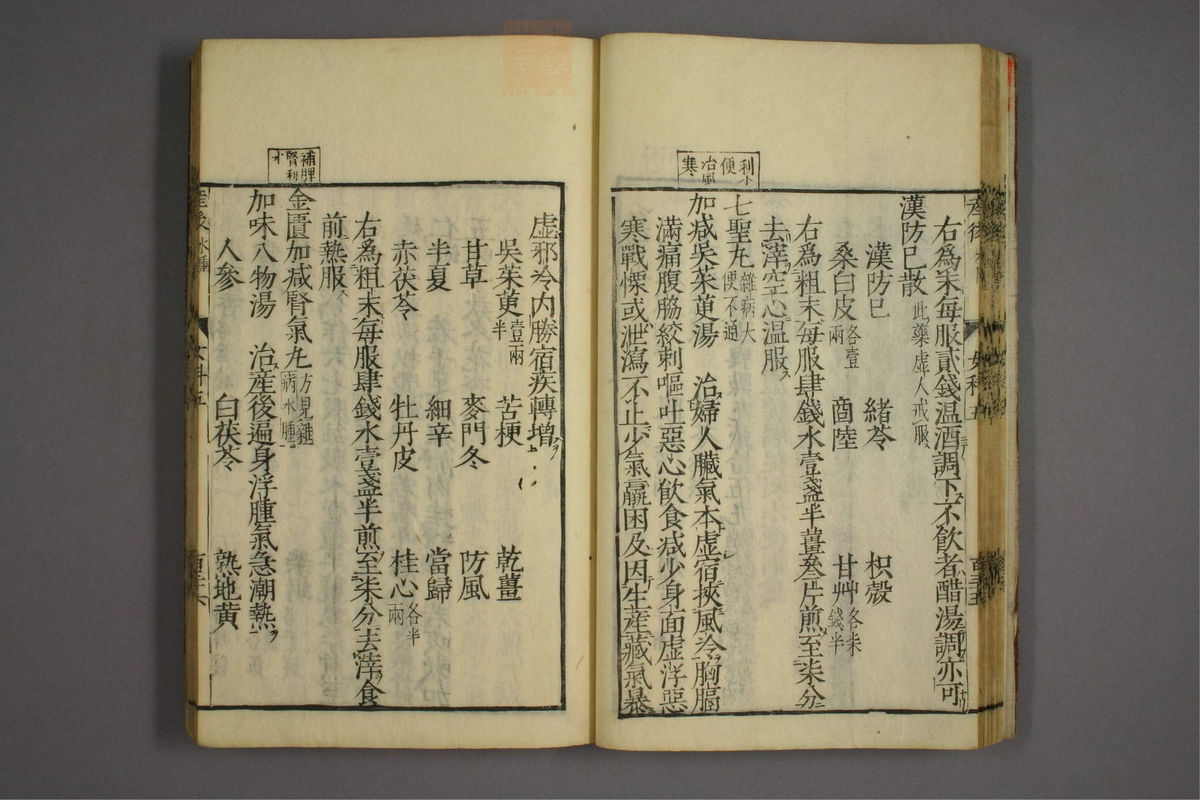 右爲末每服貳錢温酒調下不飲者醋湯調亦可
漢防巳散 此藥虛人戒服
漢防巳 緒苓 枳殼
桑白皮各壹兩 商陸 甘艸各柒錢半
右爲粗末每服肆錢水壹盞半薑叄片煎至柒分
去滓空心温服
利小便
七聖丸雜病大便不通
治風寒
加减吳茱萸湯 治婦人臟氣本虛宿挾風冷胸膈
滿痛腹脇絞刺嘔吐惡心飲食减少身面虛浮惡
寒戰慄或泄瀉不止少氣羸困及因生産藏氣暴
産後 女科五
虛邪冷内勝宿疾轉增
吳茱萸壹兩半 苦梗 乾薑
甘草 麥門冬 防風
半夏 細辛 當歸
赤茯苓 牡丹皮 桂心各半兩
右爲粗末每服肆錢水壹盞半煎至柒分去滓食
前熱服
補脾腎利水
金匱加减腎氣丸方見雜病水腫
加味八物湯 治産後遍身浮腫氣急潮熱
人參 白茯苓 熟地黄
産後 水腫 女科五